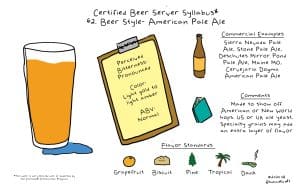 Certified Beer Server Syllabus*
#2. Beer Style- American Pale Ale
Perceived
Bitterness:
Pronounced
Color:
Light gold to
light amber
ABV:
Normal
Commercial Examples
Sierra Nevada Pale
Ale, Stone Pale Ale,
Deschutes Mirror Pond
Pale Ale, Maine MO,
Cervejaria Dogma
American Pale Ale
Comments
Made to show off
American or New World
hops US or UK ale yeast.
Specialty grains may add
an extra layer of flavor
Flavor Standards
Grapefruit
Biscuit
Pine
Tropical
Dank